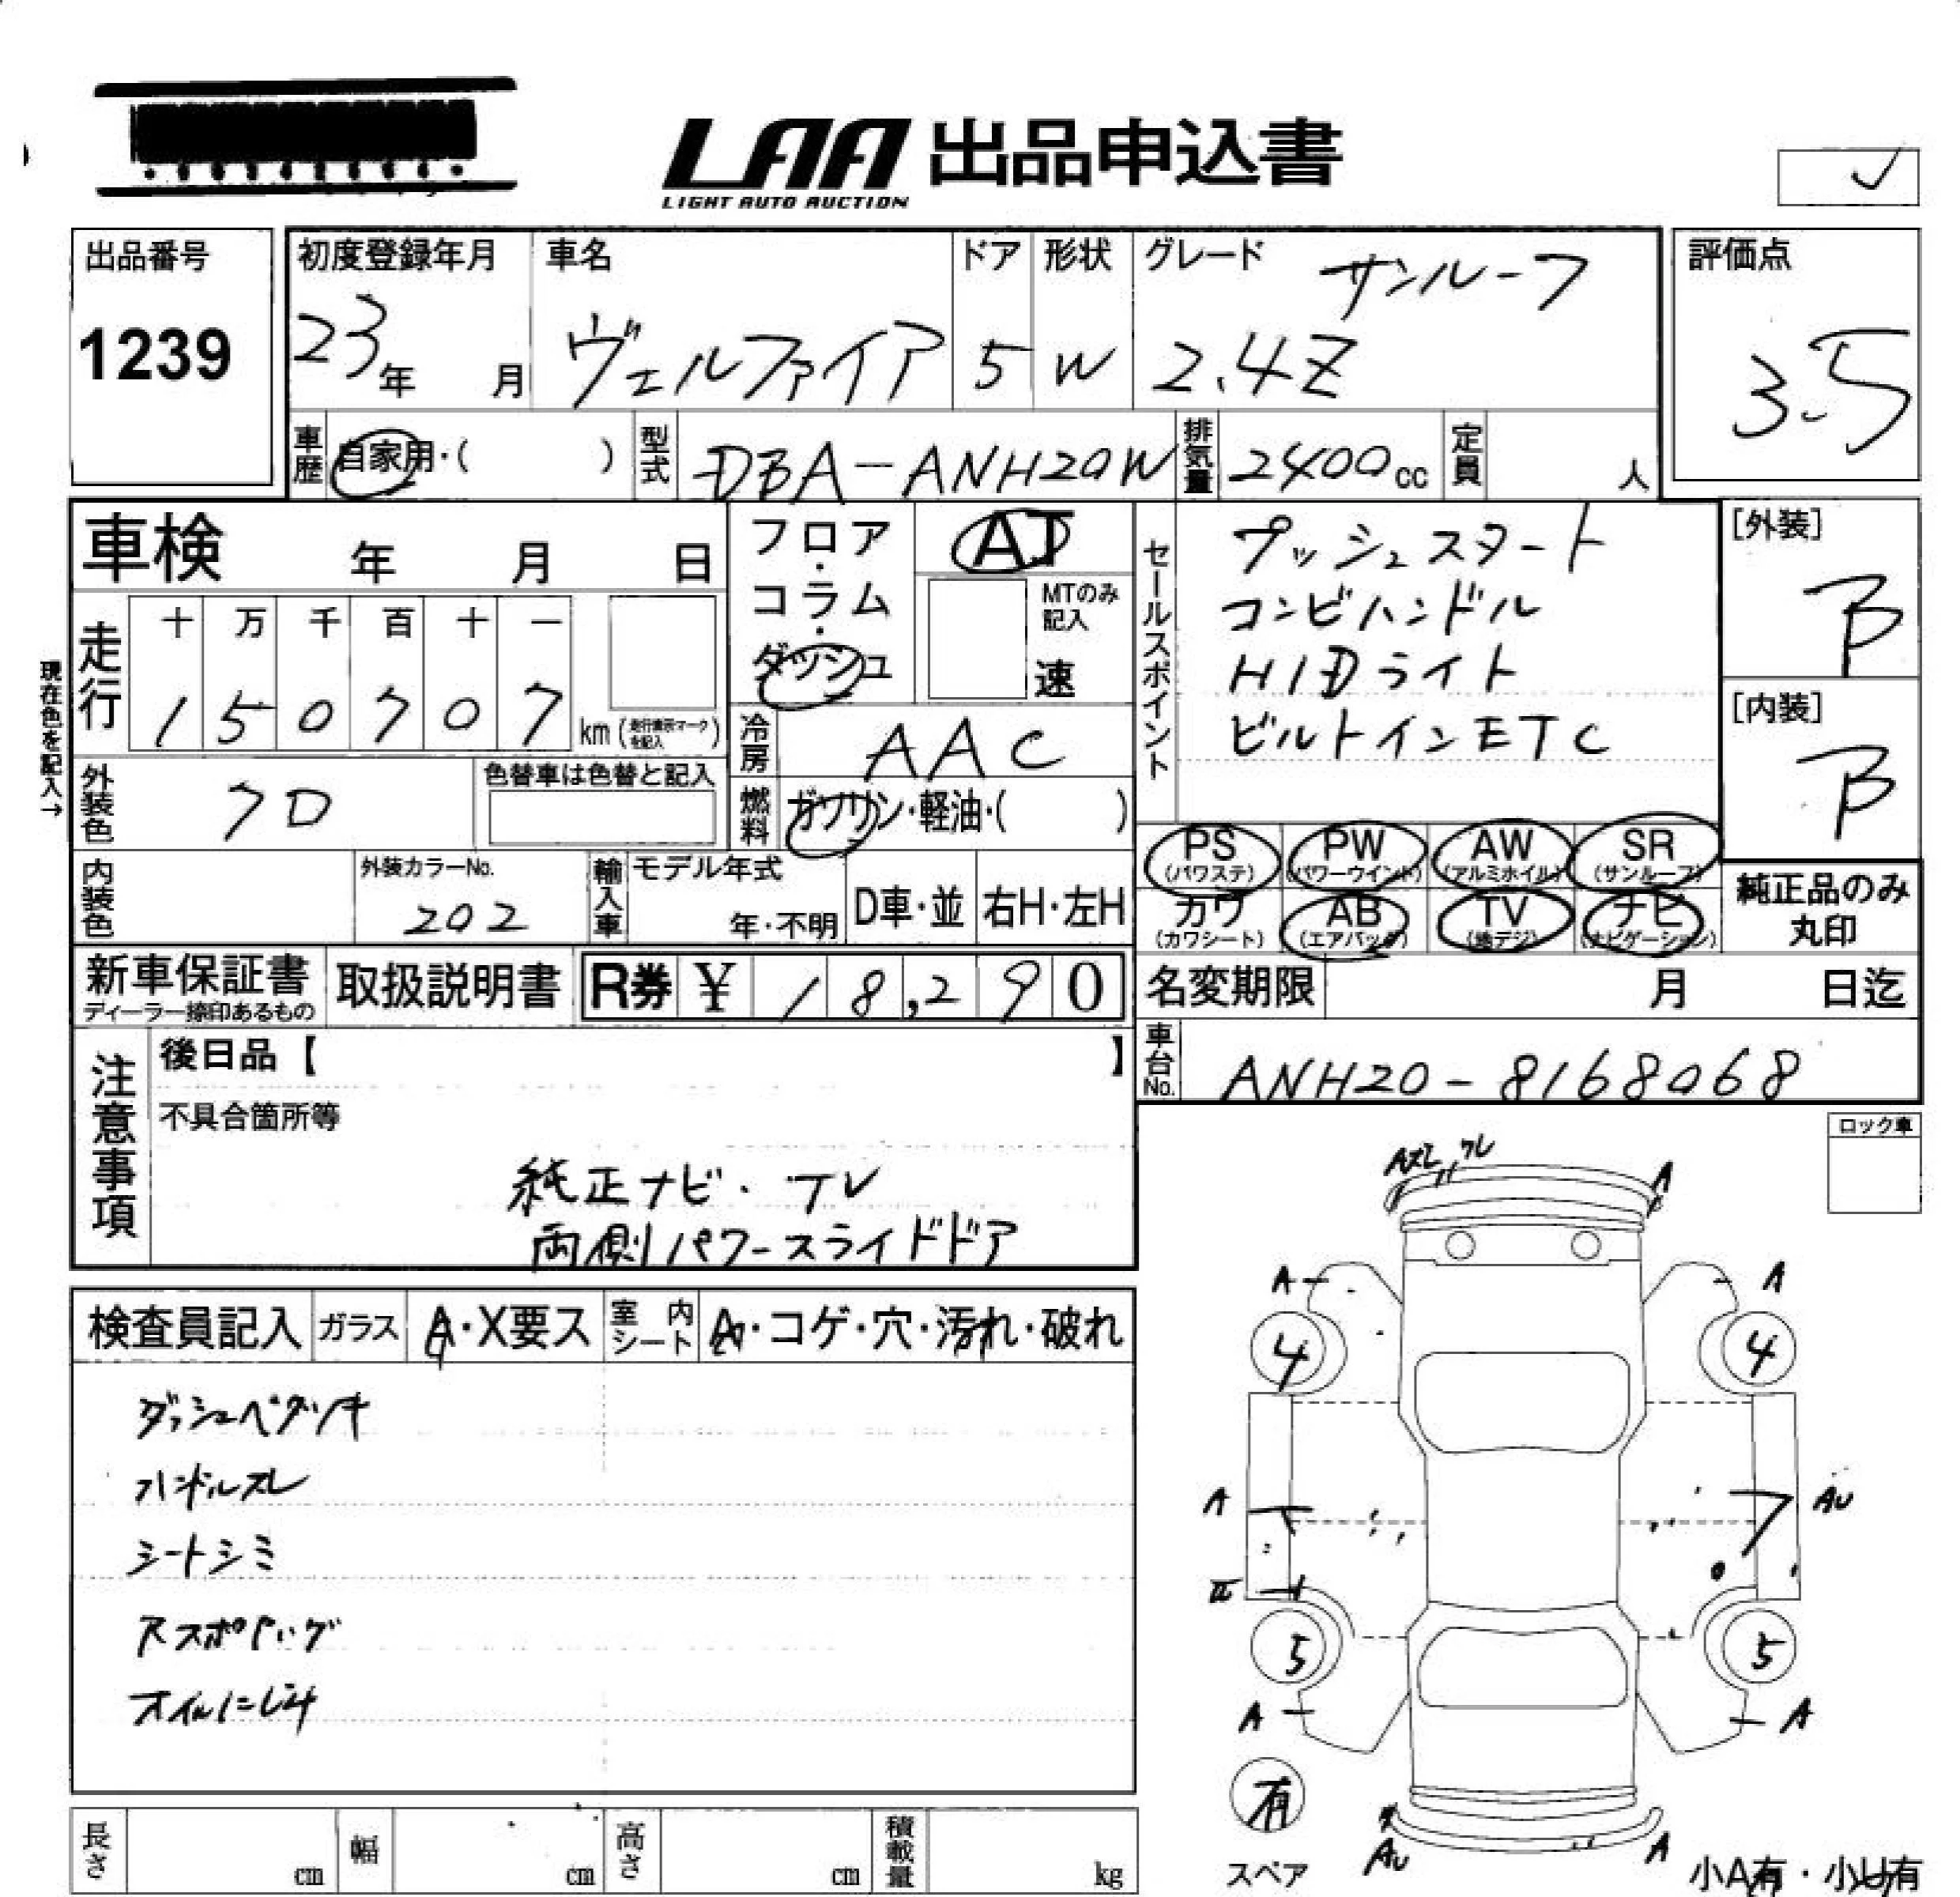 LAA 出品申込書
LIGHT AUTO AUCTION
出品番号
1239
初度登録年月
23年 月
車名
ヴェルファイア
ドア
5
形状
W
グレード
サンルーフ
2.4Z
評価点
3.5
車歴 自家用・( )
型式 DBA-ANH20W
排気量 2400cc
定員 人
車検 年 月 日
フロア・コラム・ダッシュ
AT
MTのみ記入
速
セールスポイント
プッシュスタート
コンビハンドル
HIDライト
ビルトインETC
[外装]
B
[内装]
B
現在色を記入→
走行
十 万 千 百 十 一
1 5 0 7 0 7 km
冷房 AAC
外装色 クロ
色替車は色替と記入
燃料 ガソリン・軽油・( )
PS (パワステ) PW (パワーウインド) AW (アルミホイル) SR (サンルーフ)
カワ (カワシート) AB (エアバッグ) TV (地デジ) ナビ (ナビゲーション)
純正品のみ
丸印
内装色
外装カラーNo.
202
輸入車 モデル年式
年・不明 D車・並 右H・左H
新車保証書
ディーラー捺印あるもの
取扱説明書
R券 ¥ 18,290
名変期限 月 日迄
車台No. ANH20-8168068
注意事項
後日品【 】
不具合箇所等
純正ナビ・TV
両側パワースライドドア
検査員記入 ガラス A・X要ス 室内シート A・コゲ・穴・汚れ・破れ
ダッシュベタツキ
ハンドルスレ
シートシミ
オイルにじみ
ロック車
A
A A
4 4
A AU
5 5
A A
有
スペア
AU A
小A有・小U有
長さ cm 幅 cm 高さ cm 積載量 kg